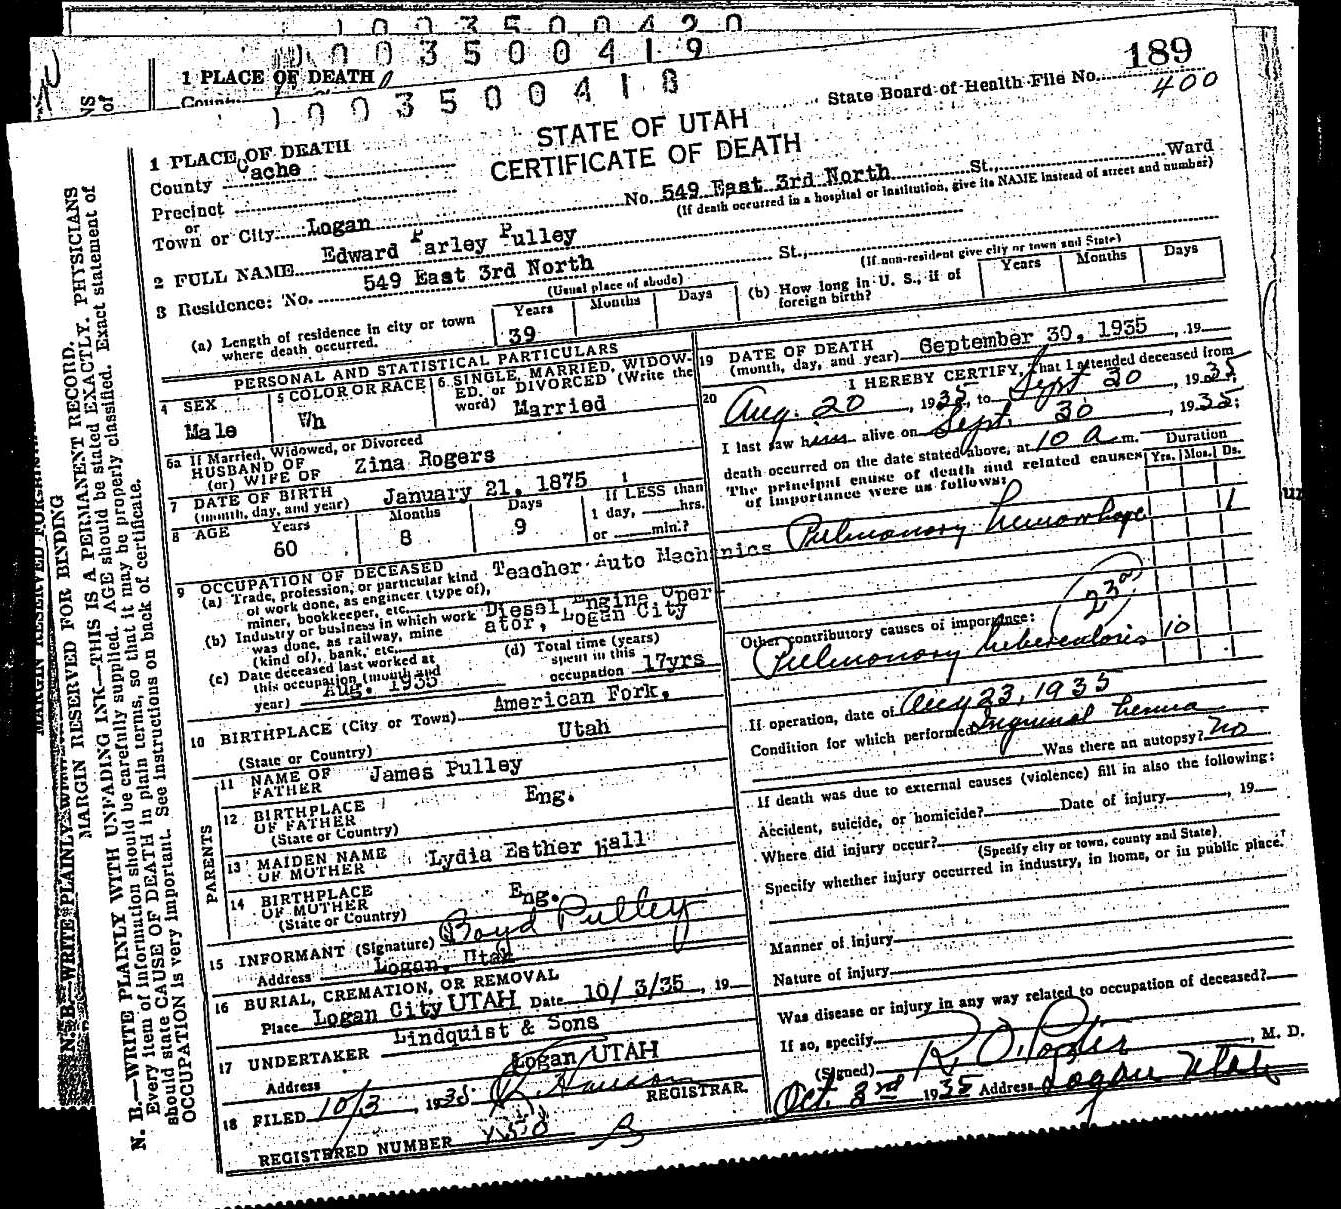 1003500420
1003500419
1 PLACE OF DEATH
1003500418
189
State Board of Health File No. 400
STATE OF UTAH
CERTIFICATE OF DEATH
1 PLACE OF DEATH
County Cache
Precinct
or
Town or City Logan No. 549 East 3rd North St., Ward
(If death occurred in a hospital or institution, give its NAME instead of street and number)
2 FULL NAME Edward Parley Pulley
3 Residence: No. 549 East 3rd North St.,
(Usual place of abode) (If non-resident give city or town and State)
(a) Length of residence in city or town where death occurred. Years 39 Months Days
(b) How long in U. S., if of foreign birth? Years Months Days
PERSONAL AND STATISTICAL PARTICULARS
4 SEX Male
5 COLOR OR RACE Wh
6 SINGLE, MARRIED, WIDOWED, or DIVORCED (Write the word) Married
6a If Married, Widowed, or Divorced
HUSBAND OF
(or) WIFE OF Zina Rogers
7 DATE OF BIRTH
(month, day, and year) January 21, 1875
8 AGE Years 60 Months 8 Days 9
If LESS than
1 day, hrs.
or min.?
9 OCCUPATION OF DECEASED
(a) Trade, profession, or particular kind of work done, as engineer (type of), miner, bookkeeper, etc. Teacher Auto Mechanics
(b) Industry or business in which work was done, as railway, mine (kind of), bank, etc. Diesel Engine Operator, Logan City
(c) Date deceased last worked at this occupation (month and year) Aug. 1935
(d) Total time (years) spent in this occupation 17yrs
10 BIRTHPLACE (City or Town) American Fork,
(State or Country) Utah
PARENTS
11 NAME OF FATHER James Pulley
12 BIRTHPLACE OF FATHER
(State or Country) Eng.
13 MAIDEN NAME OF MOTHER Lydia Esther Hall
14 BIRTHPLACE OF MOTHER
(State or Country) Eng.
15 INFORMANT (Signature) Boyd Pulley
Address Logan, Utah
16 BURIAL, CREMATION, OR REMOVAL
Place Logan City UTAH Date 10/3/35, 19
17 UNDERTAKER Lindquist & Sons
Address Logan UTAH
18 FILED 10/3, 1935
REGISTRAR.
REGISTERED NUMBER
19 DATE OF DEATH
(month, day, and year) September 30, 1935, 19
20 I HEREBY CERTIFY, That I attended deceased from
Aug. 20, 1935, to Sept 30, 1935
I last saw him alive on Sept. 30, 1935;
death occurred on the date stated above, at 10 a m.
The principal cause of death and related causes of importance were as follows:
Duration
Yrs. Mos. Ds.
Pulmonary hemorrhage 1
23
Other contributory causes of importance:
Pulmonary tuberculosis 10
If operation, date of Aug 23, 1935
Condition for which performed Inguinal hernia
Was there an autopsy? No
If death was due to external causes (violence) fill in also the following:
Accident, suicide, or homicide? Date of injury , 19
Where did injury occur?
(Specify city or town, county and State)
Specify whether injury occurred in industry, in home, or in public place.
Manner of injury
Nature of injury
Was disease or injury in any way related to occupation of deceased?
If so, specify
(Signed) R. O. Porter, M. D.
Oct. 3rd 1935 Address Logan Utah
MARGIN RESERVED FOR BINDING
N. B.—WRITE PLAINLY WITH UNFADING INK—THIS IS A PERMANENT RECORD.
Every item of information should be carefully supplied. AGE should be stated EXACTLY. PHYSICIANS
should state CAUSE OF DEATH in plain terms, so that it may be properly classified. Exact statement of
OCCUPATION is very important. See instructions on back of certificate.